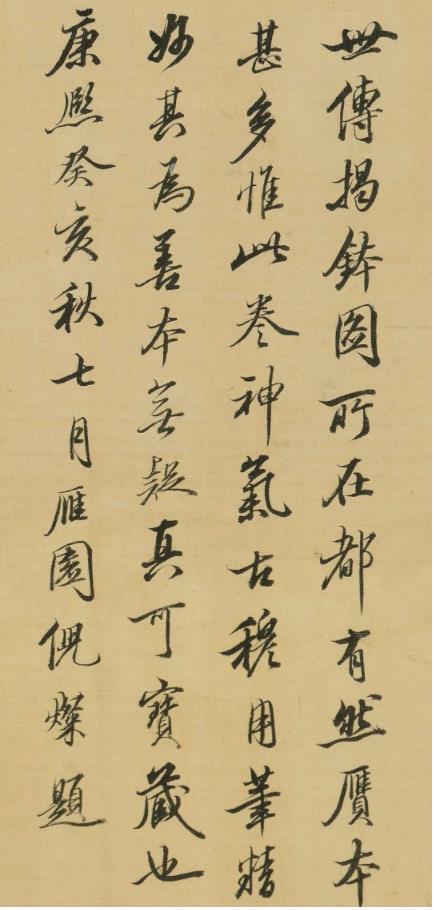 世傳揭鉢圖所在都有然贋本
甚多惟此卷神氣古穆用筆精
妙其為善本無疑真可寶藏也
康熙癸亥秋七月雁園倪燦題